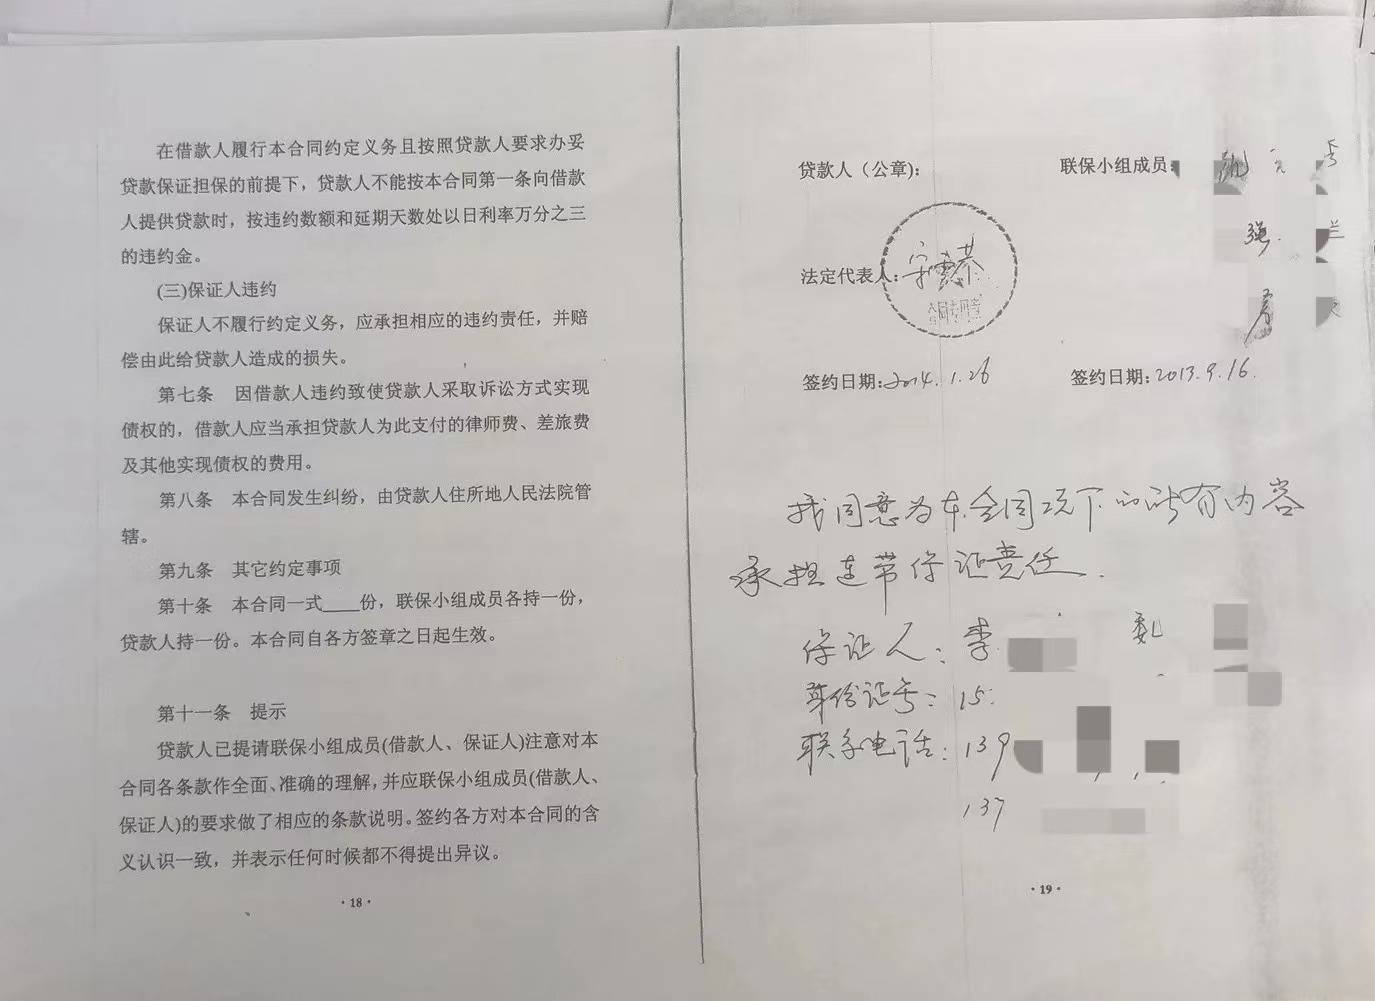 在借款人履行本合同约定义务且按照贷款人要求办妥
贷款保证担保的前提下，贷款人不能按本合同第一条向借款
人提供贷款时，按违约数额和延期天数处以日利率万分之三
的违约金。
(三)保证人违约
保证人不履行约定义务，应承担相应的违约责任，并赔
偿由此给贷款人造成的损失。
第七条 因借款人违约致使贷款人采取诉讼方式实现
债权的，借款人应当承担贷款人为此支付的律师费、差旅费
及其他实现债权的费用。
第八条 本合同发生纠纷，由贷款人住所地人民法院管
辖。
第九条 其它约定事项
第十条 本合同一式____份，联保小组成员各持一份，
贷款人持一份。本合同自各方签章之日起生效。
第十一条 提示
贷款人已提请联保小组成员(借款人、保证人)注意对本
合同各条款作全面、准确的理解，并应联保小组成员(借款人、
保证人)的要求做了相应的条款说明。签约各方对本合同的含
义认识一致，并表示任何时候都不得提出异议。
·18·
贷款人（公章）： 联保小组成员：
强 兰
法定代表人：
合同专用章
签约日期：2014.1.26 签约日期：2013.9.16.
我同意为本合同项下的所有内容
承担连带保证责任.
保证人：李 魏
身份证号：15
联系电话：139
137
·19·